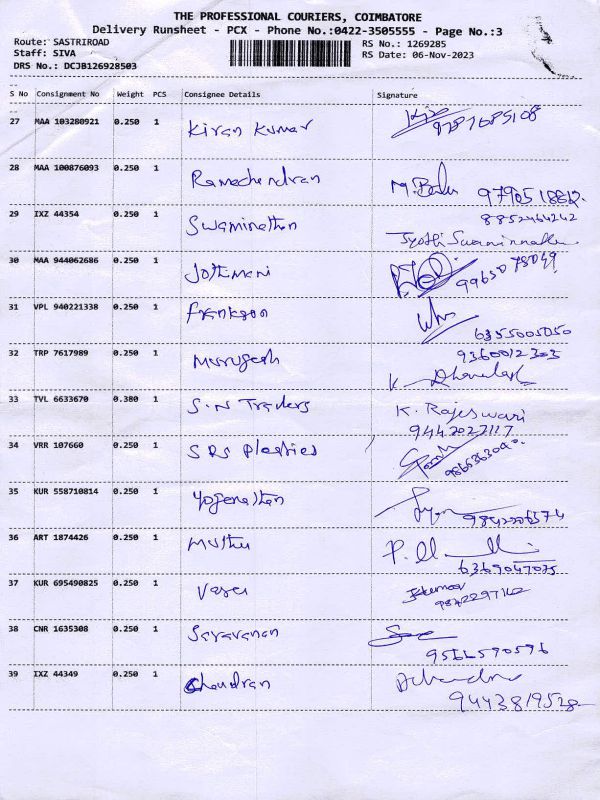 THE PROFESSIONAL COURIERS, COIMBATORE
Delivery Runsheet - PCX - Phone No.:0422-3505555 - Page No.:3
Route: SASTRIROAD
RS No.: 1269285
Staff: SIVA
RS Date: 06-Nov-2023
DRS No.: DCJB126928503
S No Consignment No Weight PCS Consignee Details Signature
27 MAA 103280921 0.250 1 Kiran Kumar
28 MAA 100876093 0.250 1 Ramachendran
29 IXZ 44354 0.250 1 Swaminathan 8852464242
Jyothi Swaminathan
30 MAA 944062686 0.250 1 Jothimani 9965075049
31 VPL 940221338 0.250 1 6355005050
32 TRP 7617989 0.250 1 Murugesh 9360012303
K
33 TVL 6633670 0.380 1 S.N Traders K. Rajeswari
34 VRR 107660 0.250 1 SRS Plastics
35 KUR 558710814 0.250 1 Yogenathan
36 ART 1874426 0.250 1 Muthu
6369047075
37 KUR 695490825 0.250 1
38 CNR 1635308 0.250 1 Saravanan
9566590596
39 IXZ 44349 0.250 1 Chandran
9443819528